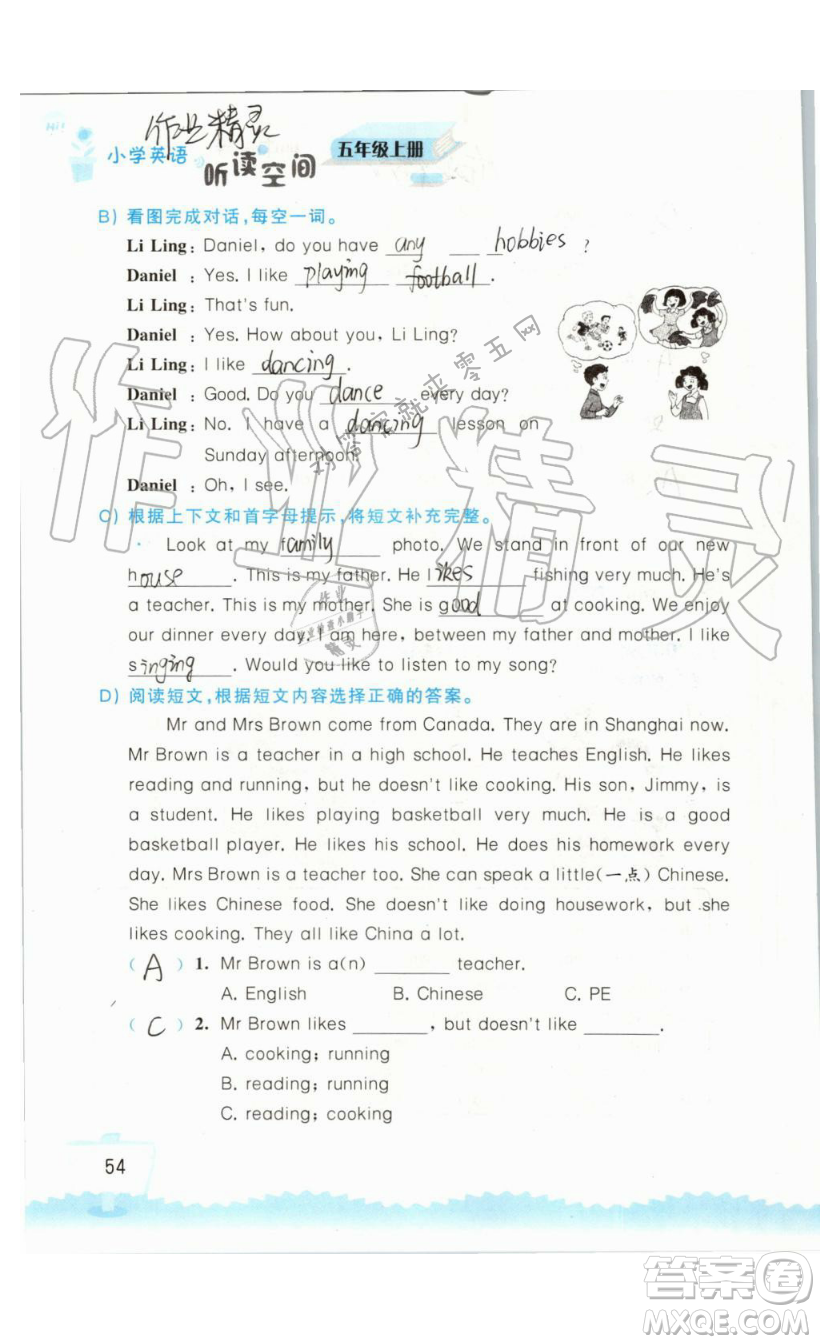 Hi!
作业精灵
小学英语
听读空间
五年级上册
B) 看图完成对话,每空一词。
Li Ling: Daniel, do you have any hobbies ?
Daniel : Yes. I like playing football.
Li Ling: That's fun.
Daniel : Yes. How about you, Li Ling?
Li Ling: I like dancing.
Daniel : Good. Do you dance every day?
Li Ling: No. I have a dancing lesson on
Sunday afternoon.
Daniel : Oh, I see.
C) 根据上下文和首字母提示,将短文补充完整。
Look at my family photo. We stand in front of our new
house. This is my father. He likes fishing very much. He's
a teacher. This is my mother. She is good at cooking. We enjoy
our dinner every day. I am here, between my father and mother. I like
singing. Would you like to listen to my song?
D) 阅读短文,根据短文内容选择正确的答案。
Mr and Mrs Brown come from Canada. They are in Shanghai now.
Mr Brown is a teacher in a high school. He teaches English. He likes
reading and running, but he doesn't like cooking. His son, Jimmy, is
a student. He likes playing basketball very much. He is a good
basketball player. He likes his school. He does his homework every
day. Mrs Brown is a teacher too. She can speak a little(一点) Chinese.
She likes Chinese food. She doesn't like doing housework, but she
likes cooking. They all like China a lot.
( A ) 1. Mr Brown is a(n) ________ teacher.
A. English B. Chinese C. PE
( C ) 2. Mr Brown likes ________, but doesn't like ________.
A. cooking; running
B. reading; running
C. reading; cooking
54
作业精灵
答案卷
MXQE.COM